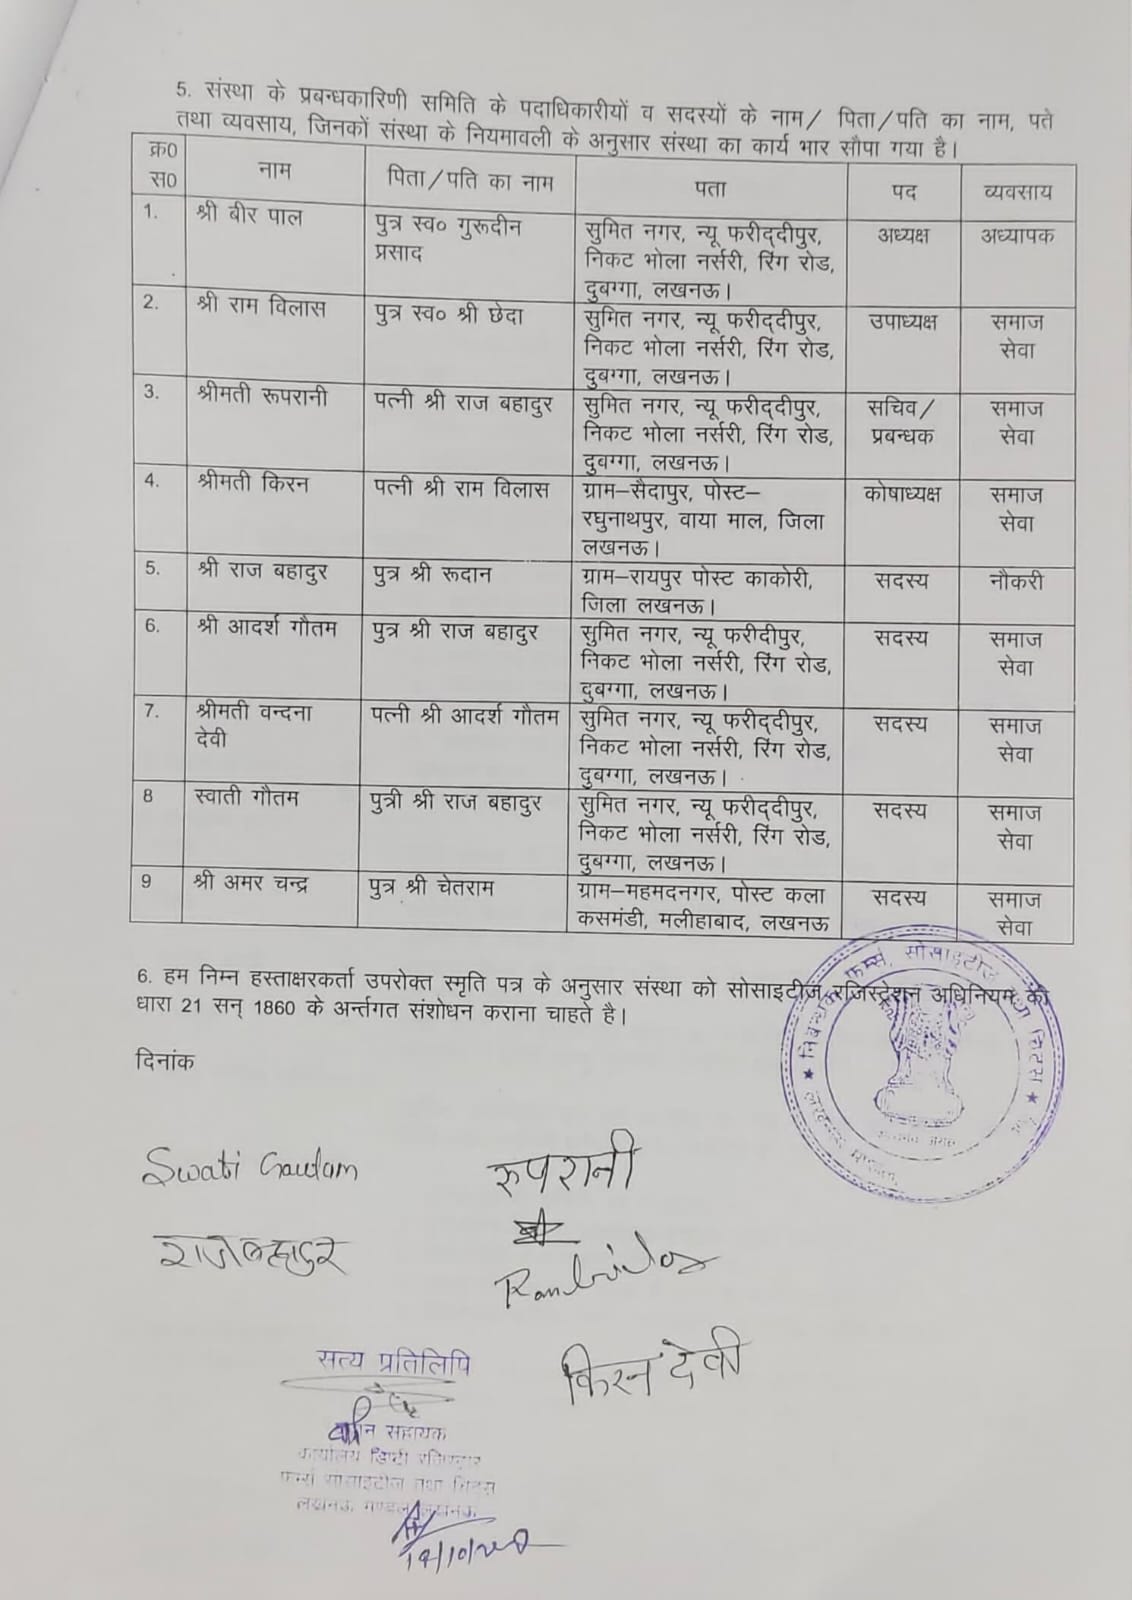 5. संस्था के प्रबन्धकारिणी समिति के पदाधिकारीयों व सदस्यों के नाम/ पिता/पति का नाम, पते
तथा व्यवसाय, जिनकों संस्था के नियमावली के अनुसार संस्था का कार्य भार सौपा गया है।
क्र0 स0 नाम पिता/पति का नाम पता पद व्यवसाय
1. श्री बीर पाल पुत्र स्व० गुरूदीन सुमित नगर, न्यू फरीद्दीपुर, अध्यक्ष अध्यापक
प्रसाद निकट भोला नर्सरी, रिंग रोड,
दुबग्गा, लखनऊ।
2. श्री राम विलास पुत्र स्व० श्री छेदा सुमित नगर, न्यू फरीद्दीपुर, उपाध्यक्ष समाज
निकट भोला नर्सरी, रिंग रोड, सेवा
दुबग्गा, लखनऊ।
3. श्रीमती रूपरानी पत्नी श्री राज बहादुर सुमित नगर, न्यू फरीद्दीपुर, सचिव/ समाज
निकट भोला नर्सरी, रिंग रोड, प्रबन्धक सेवा
दुबग्गा, लखनऊ।
4. श्रीमती किरन पत्नी श्री राम विलास ग्राम–सैदापुर, पोस्ट– कोषाध्यक्ष समाज
रघुनाथपुर, वाया माल, जिला सेवा
लखनऊ।
5. श्री राज बहादुर पुत्र श्री रूदान ग्राम–रायपुर पोस्ट काकोरी, सदस्य नौकरी
जिला लखनऊ।
6. श्री आदर्श गौतम पुत्र श्री राज बहादुर सुमित नगर, न्यू फरीदीपुर, सदस्य समाज
निकट भोला नर्सरी, रिंग रोड, सेवा
दुबग्गा, लखनऊ।
7. श्रीमती वन्दना पत्नी श्री आदर्श गौतम सुमित नगर, न्यू फरीद्दीपुर, सदस्य समाज
देवी निकट भोला नर्सरी, रिंग रोड, सेवा
दुबग्गा, लखनऊ।
8 स्वाती गौतम पुत्री श्री राज बहादुर सुमित नगर, न्यू फरीद्दीपुर, सदस्य समाज
निकट भोला नर्सरी, रिंग रोड, सेवा
दुबग्गा, लखनऊ।
9 श्री अमर चन्द्र पुत्र श्री चेतराम ग्राम–महमदनगर, पोस्ट कला सदस्य समाज
कसमंडी, मलीहाबाद, लखनऊ सेवा
6. हम निम्न हस्ताक्षरकर्ता उपरोक्त स्मृति पत्र के अनुसार संस्था को सोसाइटीज रजिस्ट्रेशन अधिनियम की
धारा 21 सन् 1860 के अर्न्तगत संशोधन कराना चाहते है।
निबन्धक फर्म्स, सोसाइटीज तथा चिट्स
दिनांक
Swati Gautam रुपरानी
राजबहादुर
Ramvilas
किरन देवी
सत्य प्रतिलिपि
सहायक
कार्यालय डिप्टी रजिस्ट्रार
फर्म्स सोसाइटीज तथा चिट्स
लखनऊ मण्डल लखनऊ